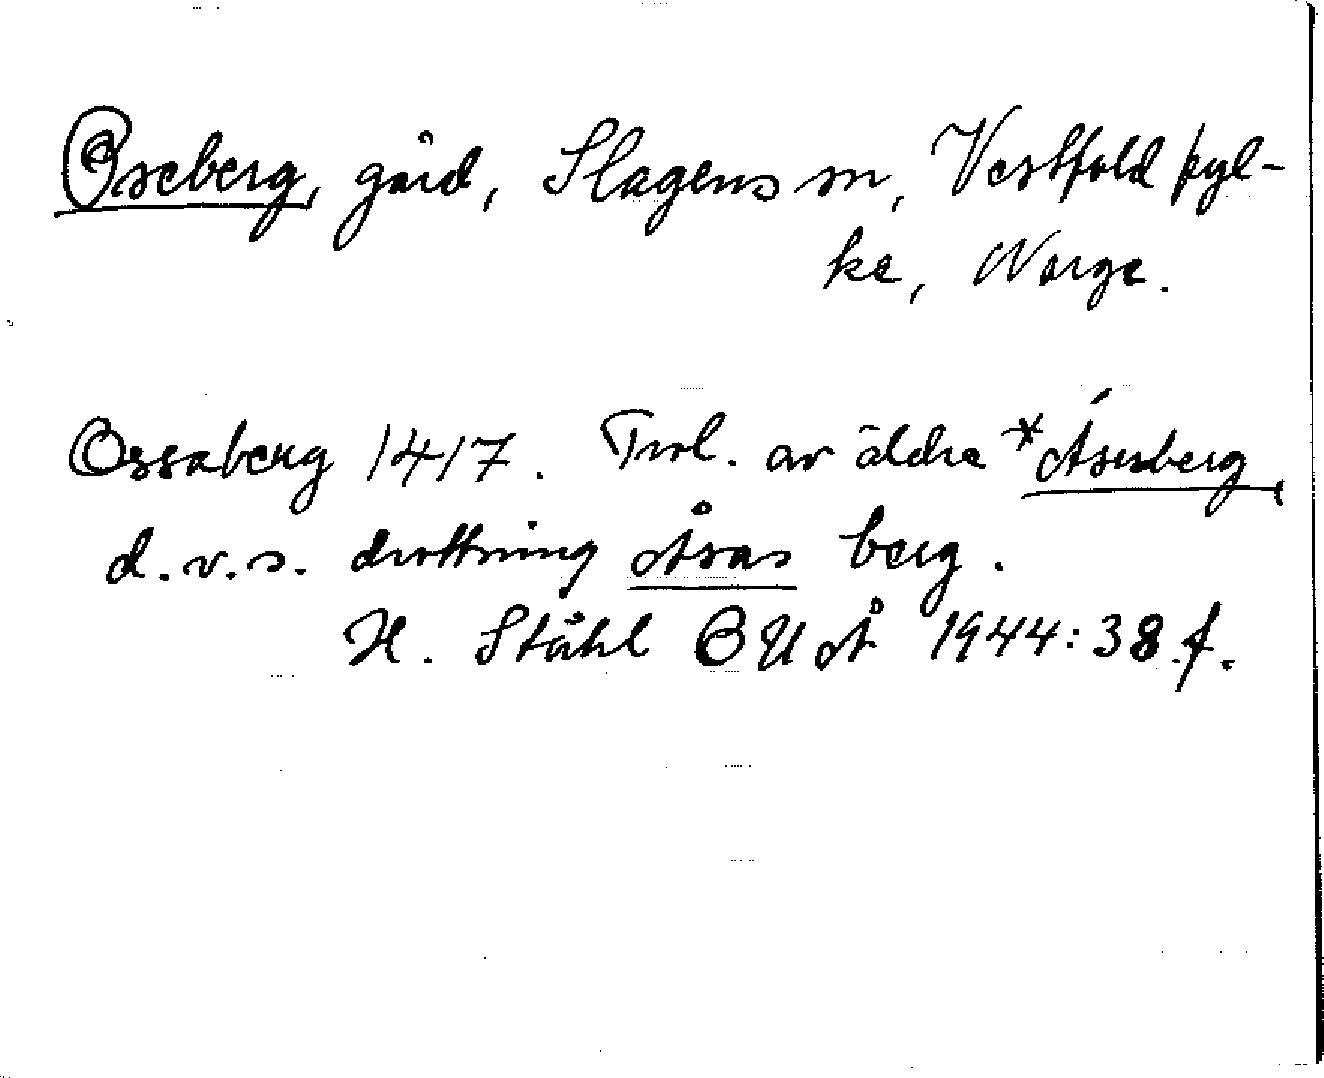 Oseberg, gård, Slagens sn, Vestfold fyl-
ke, Norge.
Ossaberg 1417. Trol. av äldre *Ásuberg,
d.v.s. drottning Åsas berg.
H. Ståhl BUÅ 1944:38 f.